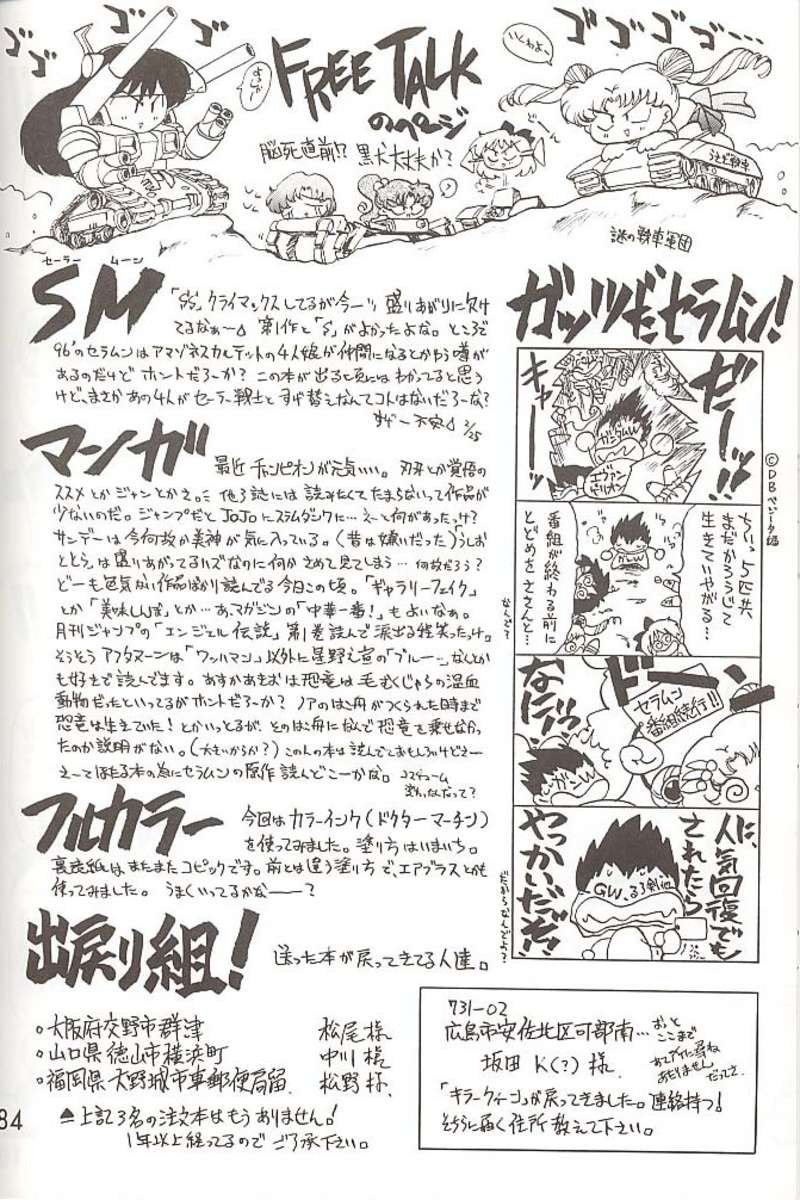 ゴゴゴ
FREE TALK
のページ
いくわよ〜
ゴゴゴゴ…
脳死直前!? 黒犬大丈夫か?
謎の戦車軍団
セーラー ムーン
SM
「SS」クライマックスしてるが今一ツ盛りあがりに欠け
てるなぁ〜 第1作と「S」がよかったよな。ところで
96'のセラムンはアマゾネスカルテットの4人娘が仲間になるとかゆう噂が
あるのだけどホントだろーか? この本が出る頃にはわかってると思う
けど、まさかあの4人がセーラー戦士とすげ替えなんてコトはないだろーな?
すげー不安 2/25
マンガ
最近チャンピオンが元気いい。刃牙とか覚悟の
ススメとかジャンとかさ。他3誌には読みたくてたまらないって作品が
少ないのだ。ジャンプだとJoJoにスラムダンクに…えーと何があったっけ?
サンデーは今何故か美神が気に入っている。(昔は嫌いだった)「うしお
ととら」は盛りあがってるハズなのに何かさめて見てしまう…何故だろう?
どーも色気ない作品ばかり読んでる今日この頃。「ギャラリーフェイク」
とか「美味しんぼ」とか…あ、マガジンの「中華一番!」もよいなぁ。
月刊ジャンプの「エンジェル伝説」第1巻読んで涙出る程笑ったっけ。
そうそうアフタヌーンは「ワッハマン」以外に星野之宣の「ブルー…」なんとか
も好きで読んでます。あすかあきおは恐竜は毛むくじゃらの温血
動物だったといってるがホントだろーか? ノアのはこ舟がつくられた時まで
恐竜は生きていた!とかいっとるが、そのはこ舟になんで恐竜を乗せなかっ
たのか説明がない。(大きいからか?)この人の本は読んでておもしろいけどさー
えーてほたる本の為にセラムンの原作読んどこーかな。
フルカラー
今回はカラーインク(ドクターマーチン)
を使ってみました。塗り方はいまいち。
裏表紙はまたまたコピックです。前とは違う塗り方で、エアブラスとかも
使ってみました。うまくいってるかな——?
出戻り組!
送った本が戻ってきてる人達。
○大阪府交野市郡津 松尾様
○山口県徳山市横浜町 中川様
○福岡県大野城市車郵便局留 松野様
▲上記3名の注文本はもうありません!
1年以上経ってるのでご了承下さい。
ガッツだセラムン!
©DBベジータ編
だーッ!!
キャーッ
ガンダムW
エヴァンゲリオン
ちぃっ5匹共
まだかろうじて
生きていやがる…
番組が終わる前に
とどめをささんと…
なんで?
ドーン
セラムン
番組続行!!
なにィッ
人気回復でも
されたら
やっかいだぞ!
GW、るろ剣他
だからなんでよ?
731-02
広島市安佐北区可部南…
おっと
ここまで
坂田 K(?) 様
「キラークィーン」が戻ってきました。連絡待つ!
そちらに届く住所教えて下さい。
84